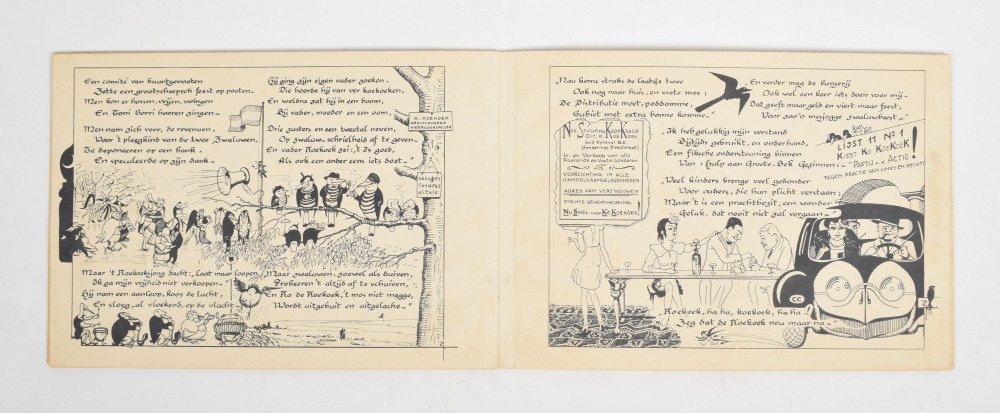 Een comité van buurtgenooten
Zette een grootscheepsch feest op pooten.
Men kon er hossen, vrijen, swingen
En Tomi Borri hooren zingen.—
Men nam zich voor, de revenuen,
Voor 't pleegkind van de twee Zwaluwen,
Te deponeeren op een bank.
En speculeerde op zijn dank.—
Hij ging zijn eigen vader zoeken,
Die hoorde bij van ver koekoeken,
En weldra zat hij in een boom,
Bij vader, moeder en een oom,
Drie zusters en een tweetal neven,
Op zwaluw-schrielheid af te geven.—
En vader Koekoek zei: 't is goed,
Als ook een ander eens iets doet.—"
K. KOEKOEK
Maar 't Koekoeksjong dacht: „Laat maar loopen,
Ik ga mijn vrijheid niet verkoopen.—"
Hij nam een aanloop, koos de lucht,
En sloeg, al vloekend, op de vlucht.—
„Maar zwaluwen, zoowel als duiven,
Probeeren 't altijd af te schuiven,
En Ko de Koekoek, 't mos niet magge,
Wordt uitgebuit en uitgelache.—"
2
„Nou komen straks de laatste twee
Ook nog naar huis, en vrete mee;
De Distributie moet, poddomme,
Subiet met extra bonne komme.—"
Ned. Stichting Koopkracht
Dir. K. Koekoek
oud Kolonel B.D.
In- en Verkoop van alle
Roerende en Vaste Goederen
VOORLICHTING IN ALLE
HANDELSAANGELEGENHEDEN
ADRES VAN VERTROUWEN
STRIKTE GEHEIMHOUDING
Nu Snel naar Ko Koekoek!
„En verder mag de burgerij
Ook wel een keer iets doen voor mij—
Dat geeft maar geld en viert maar feest,
Voor zoo'n mezjogge zwaluwbeest.—"
„Ik heb gelukkig mijn verstand
Bijtijds gebruikt, en onderhand,
Een fiksche ondersteuning binnen
Van „Hulp aan Groote-Bek Gezinnen.—"
LIJST 11 Nº 1
KIEST KO KOEKOEK!
PARTIJ v.d. ACTIE!
TEGEN REACTIE VAN LINKS EN RECHTS
„Veel kinders brenge veel gedonder
Voor ouders, die hun plicht verstaan;
Maar 't is een prachtbezit, een wonder
Geluk, dat nooit niet zal vergaan.—"
CC
„Koekoek, ha ha, koekoek, ha ha!
Zeg dat de Koekoek nou maar na.—"